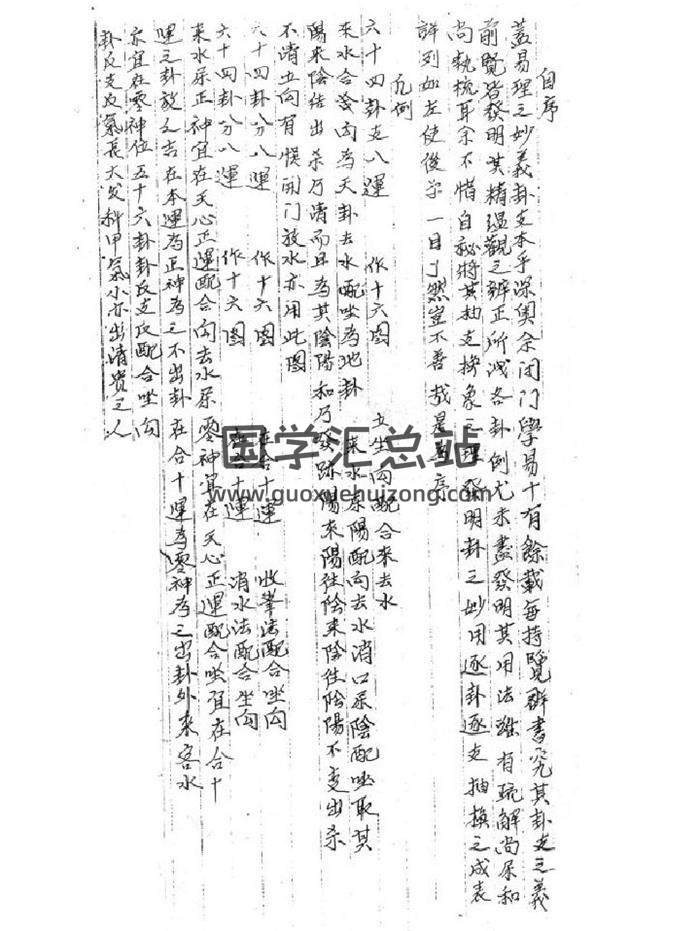 自序
蓋易理之妙義卦爻本乎深奥余闭门學易十有餘載每持覽群書究其卦爻之義
前賢皆發明其精蕴觀之辨正所減各卦例尤未盡發明其用法雖有疏解尚屬和
尚執梳耳余不惜自秘將其抽爻换象之理發明卦之妙用逐卦逐爻抽换之成表
詳列如左使後学一目了然豈不善哉是為序
凡例
六十四卦爻八運 作十六图 立坐向配合来去水
来水合發向為天卦去水配坐為地卦 来水屬陽配向去水消口屬陰配坐取其
陽来陰结出杀乃清而且為其陰陽和乃發跡陽来陽往陰来陰往陰陽不变出杀
不清立向有误開门放水亦用此图
六十四卦分八運 作十六图 在合十運 收峯法配合坐向
六十四卦分八運 作十六图 在合十運 消水法配合坐向
来水屬正神宜在天心正運配合向去水屬零神宜在天心正運配合坐宜在合十
運之卦放之吉在本運為正神為之不出卦在合十運為零神為之出卦外来客水
亦宜在零神位五十六卦卦反爻反配合坐向
卦反爻反氣長大发科甲氣小亦出清貴之人
国学汇总站
www.guoxuehuizong.com